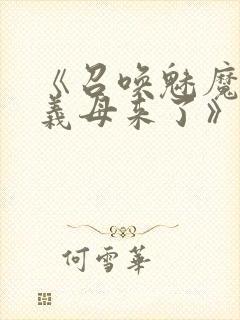 《召唤魅魔
義母来了》
何雪華